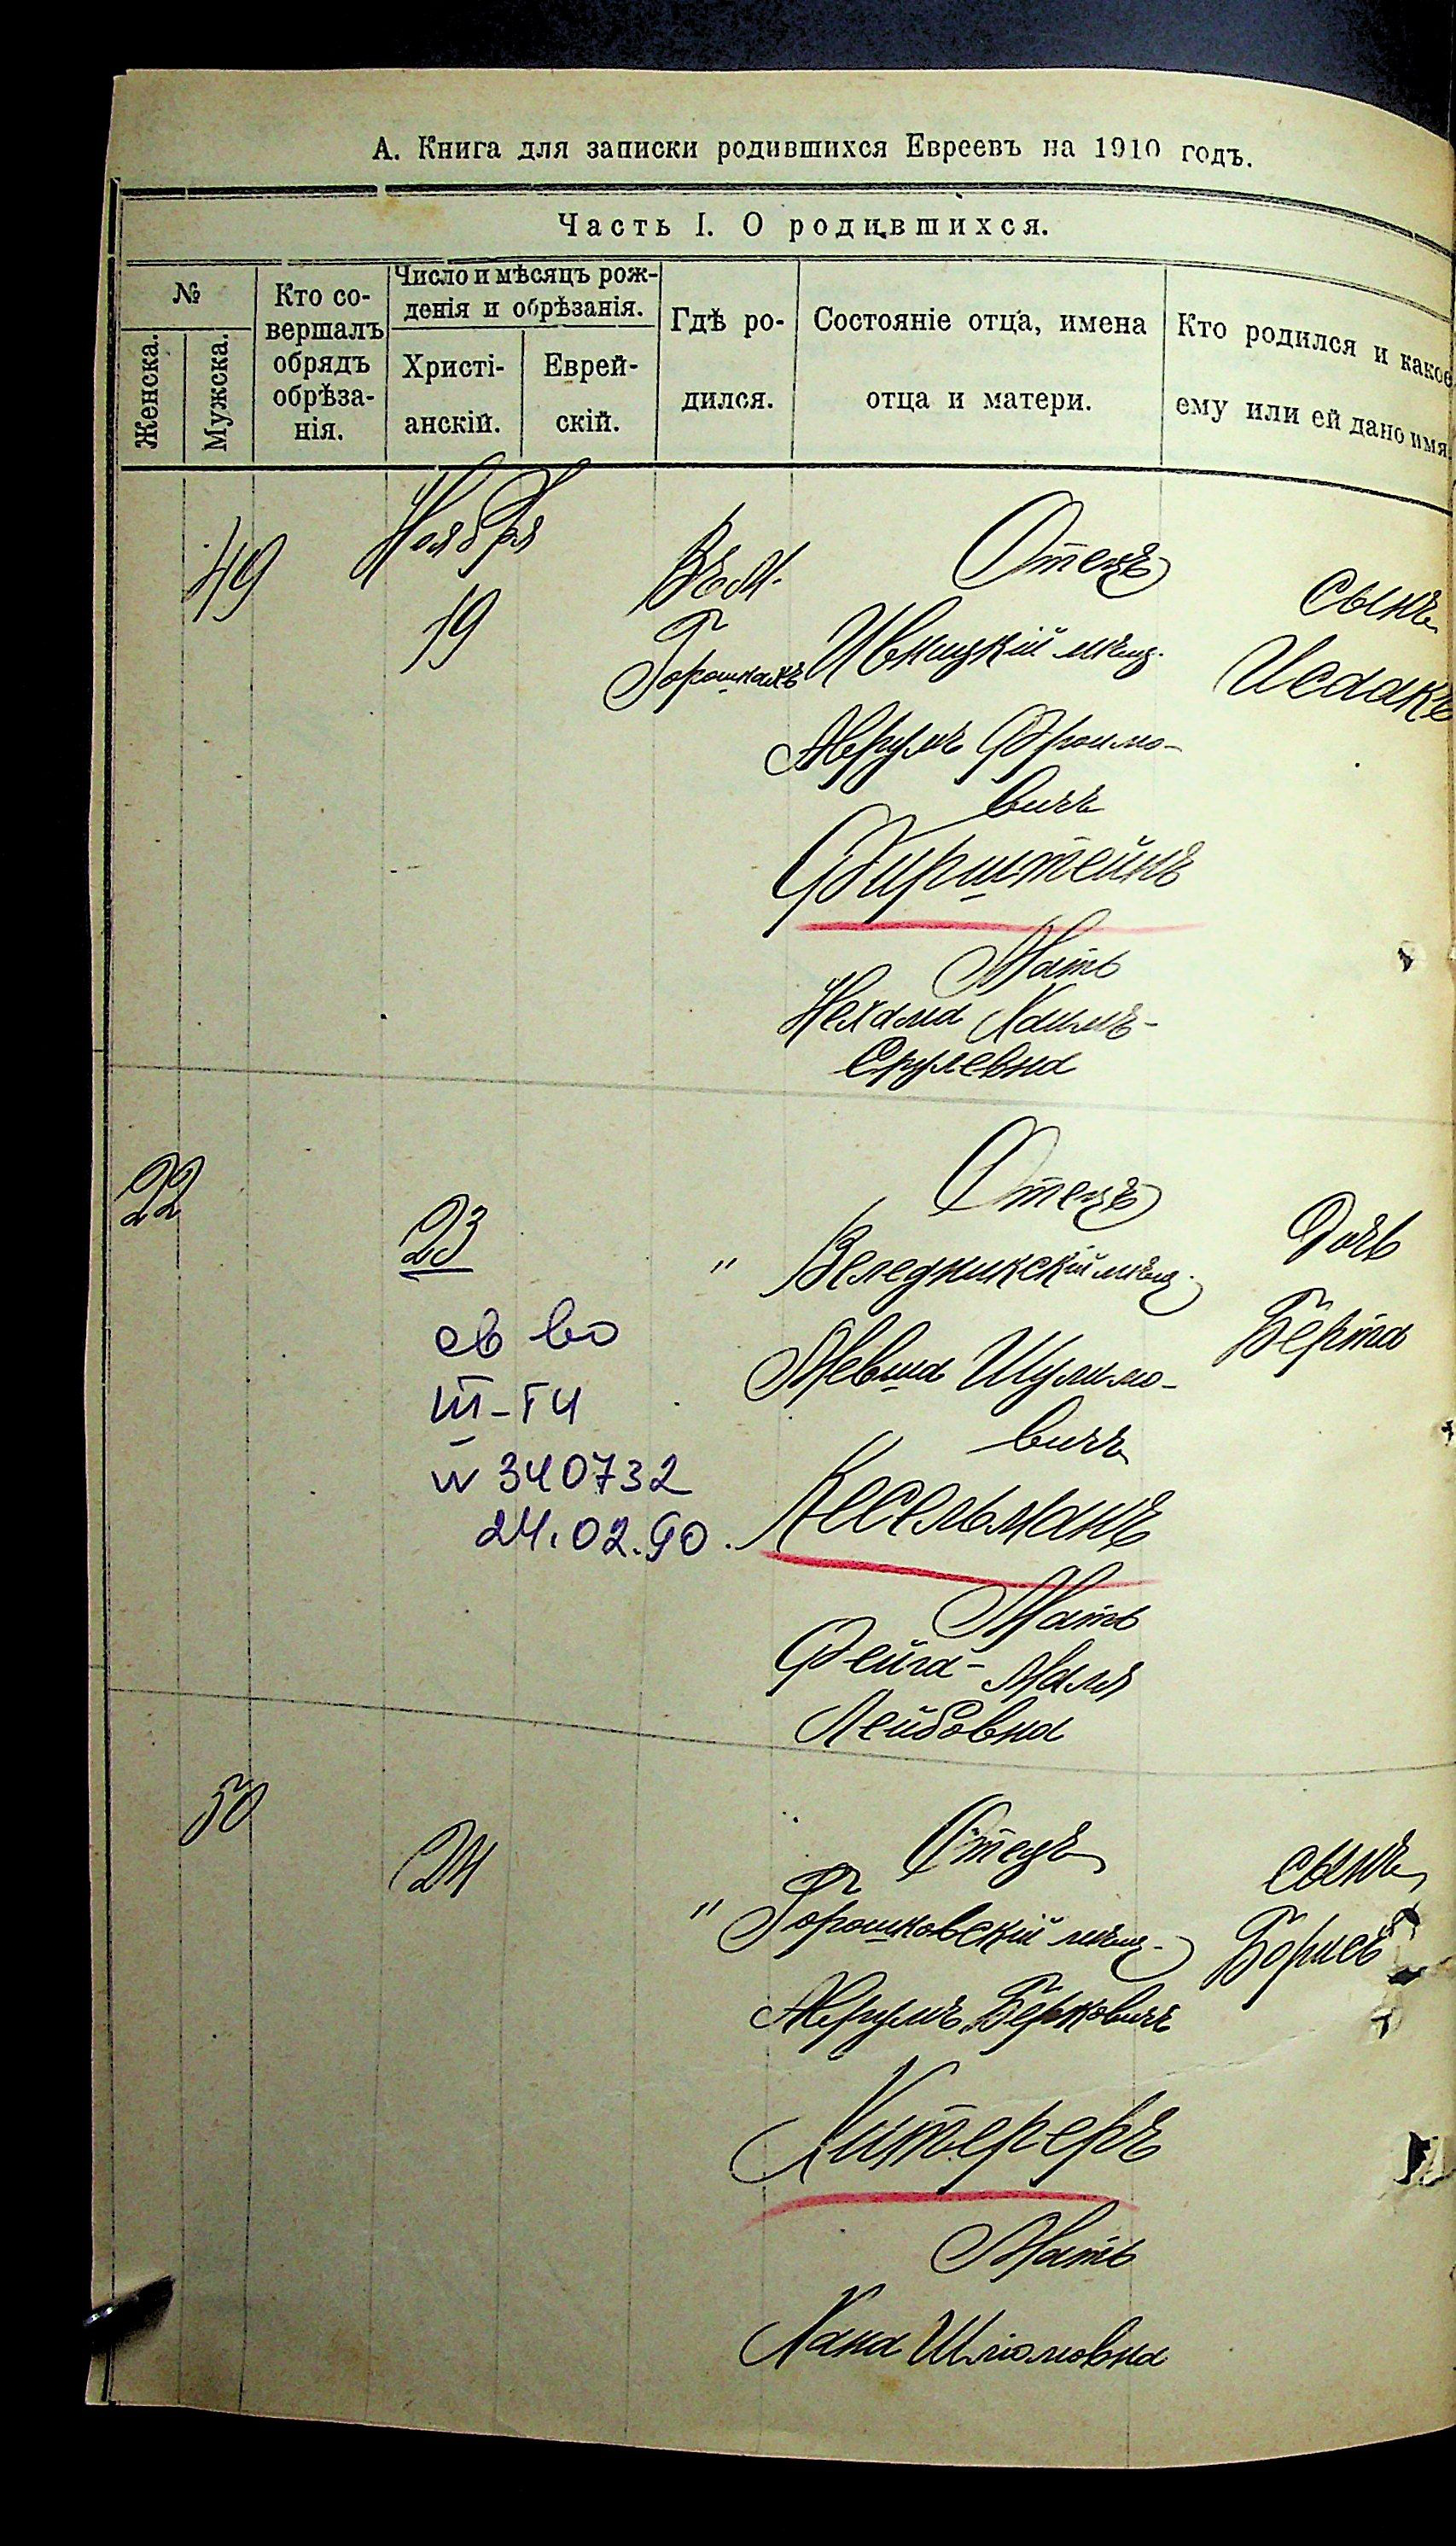 А. Книга для записки родившихся Евреевъ на 1910 годъ.
Часть I. О родившихся.
№
Женска.
Мужска.
Кто со-
вершалъ
обрядъ
обрѣза-
нія.
Число и мѣсяцъ рож-
денія и обрѣзанія.
Христі-
анскій.
Еврей-
скій.
Гдѣ ро-
дился.
Состояніе отца, имена
отца и матери.
Кто родился и какое
ему или ей дано имя.
49
Ноября
19
Въ м.
Горошкахъ
Отецъ
Ивницкій мѣщ.
Аврумъ Фроимо-
вичъ
Фирштейнъ
Мать
Нехама Хаимъ-
Срулевна
сынъ
Исаакъ
22
23
св во
III-ГЧ
N 340732
24.02.90.
"
Отецъ
Веледникскій мѣщ.
Мевша Шулимо-
вичъ
Кесельманъ
Мать
Фейга-Маля
Лейбовна
Дочь
Берта
50
24
"
Отецъ
Горошковскій мѣщ.
Аврумъ Берковичъ
Хитереръ
Мать
Хана Шліомовна
сынъ
Борисъ